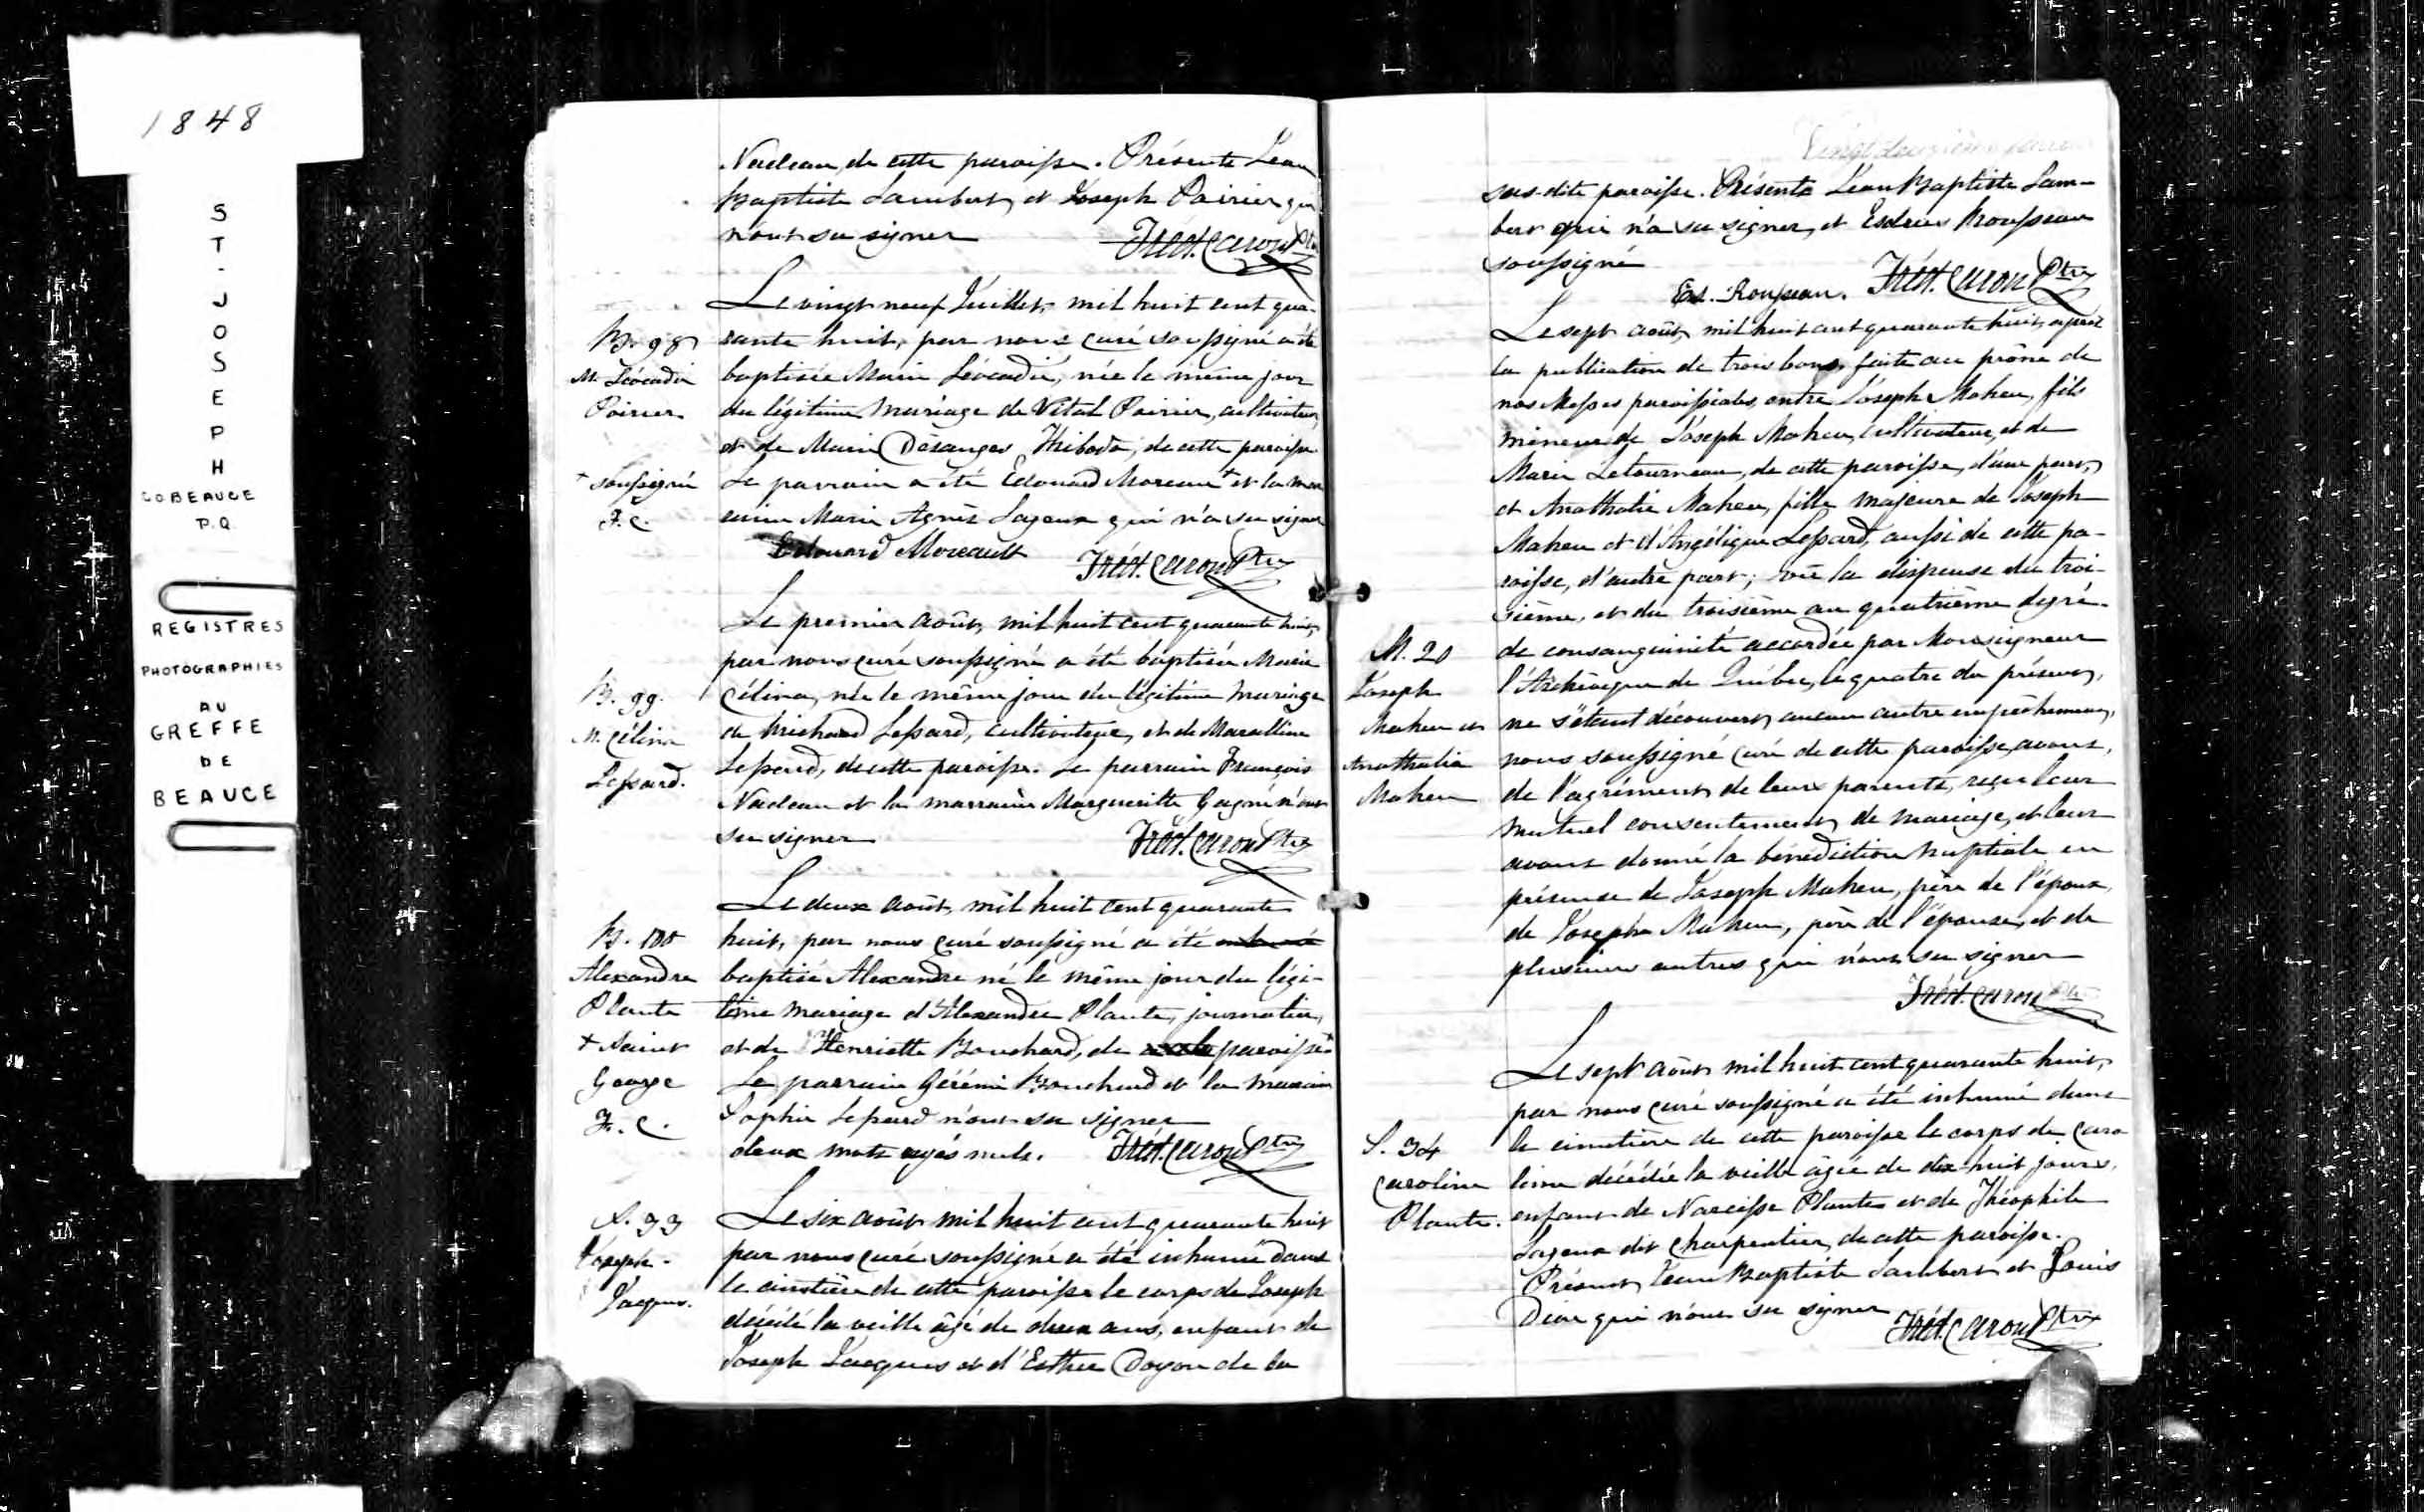 1848
ST-JOSEPH
CO BEAUCE
P.Q.
REGISTRES
PHOTOGRAPHIES
AU
GREFFE
DE
BEAUCE
Nadeau, de cette paroisse. Présents Jean
Baptiste Lambert, et Joseph Poirier qui
n'ont su signer Fréd. Caron Ptre
Le vingt neuf Juillet, mil huit cent qua-
B. 98
M. Léocadie
Poirier
rante huit, par nous curé soussigné a été
baptisée Marie Léocadie, née le même jour
du légitime mariage de Vital Poirier, cultivateur,
et de Marie Désanges Thibodo, de cette paroisse
+ soussigné
F. C.
Le parrain a été Edouard Moreau + et la mar
raine Marie Agnès Lagueux qui n'a su signer
Edouard Moreault Fréd. Caron Ptre
Le premier août, mil huit cent quarante huit,
par nous curé soussigné a été baptisée Marie
B. 99.
M. Célina
Lessard.
Célina, née le même jour du légitime mariage
de Michard Lessard, cultivateur, et de Marcelline
Lessard, de cette paroisse. Le parrain François
Nadeau et la marraine Marguerite Gagné n'ont
su signer Fréd. Caron Ptre
Le deux août, mil huit cent quarante
B. 100
Alexandre
Plante
+ Saint
George
F. C.
huit, par nous curé soussigné a été
baptisé Alexandre né le même jour du légi-
time mariage d'Alexandre Plante, journalier,
et de Henriette Bouchard, de paroisse +
Le parrain Gérémi Bouchard et la marraine
Sophie Lessard n'ont su signer
deux mots rayés nuls. Fréd. Caron Ptre
S. 33
Joseph
Jacques.
Le six août mil huit cent quarante huit
par nous curé soussigné a été inhumé dans
le cimetière de cette paroisse le corps de Joseph
décédé la veille âgé de deux ans, enfant de
Joseph Jacques et d'Esther Doyon de la
Vingt deuxième
sus-dite paroisse. Présents Jean Baptiste Lam-
bert qui n'a su signer, et Esdras Rousseau
soussigné
Es. Rousseau. Fréd. Caron Ptre
Le sept août, mil huit cent quarante huit, après
la publication de trois bans, faite au prône de
nos Messes paroissiales, entre Joseph Maheu, fils
mineur de Joseph Maheu, cultivateur, et de
Marie Letourneau, de cette paroisse, d'une part,
et Anathalie Maheu, fille majeure de Joseph
Maheu et d'Angélique Lessard, aussi de cette pa-
roisse, d'autre part; vu la dispense du troi-
sième, et du troisième au quatrième degré
M. 20
Joseph
Maheu et
Anathalie
Maheu
de consanguinité accordée par Monseigneur
l'Archévêque de Québec, le quatre du présent,
ne s'étant découvert aucun autre empêchement,
nous soussigné curé de cette paroisse, avons,
de l'agrément de leurs parents, reçu leur
mutuel consentement de mariage, et leur
avons donné la bénédiction nuptiale en
présence de Joseph Maheu, père de l'époux,
de Joseph Maheu, père de l'épouse, et de
plusieurs autres qui n'ont su signer
Fréd. Caron Ptre
Le sept août mil huit cent quarante huit,
par nous curé soussigné a été inhumé dans
S. 34
Caroline
Plante.
le cimetière de cette paroisse le corps de Caro
line décédée la veille âgée de dix-huit jours,
enfant de Narcisse Plante et de Théophile
Lagueux dit Charpentier, de cette paroisse.
Présents Jean Baptiste Lambert et Louis
Dion qui n'ont su signer Fréd. Caron Ptre